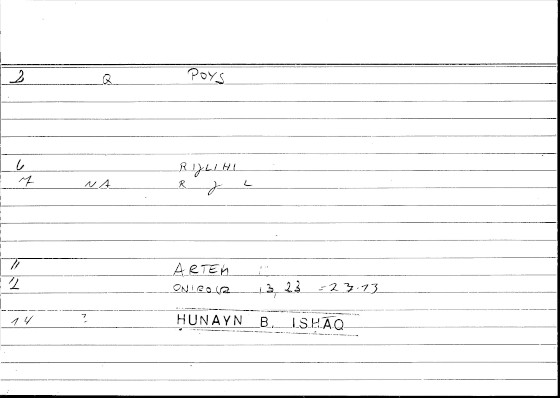 2 Q POYS
6 RIJLIHI
7 NA R J L
11 ARTEM
12 ONIROCR 13, 23 = 23.13
14 ? HUNAYN B. ISHAQ